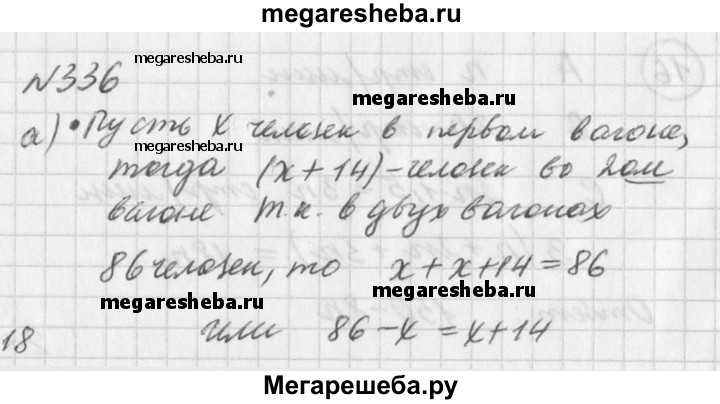 megaresheba.ru
№336
megaresheba.ru
а) • Пусть x человек в первом вагоне,
тогда (x+14)-человек во 2ом
вагоне т.к. в двух вагонах
86 человек, то x+x+14=86
megaresheba.ru
megaresheba.ru
megaresheba.ru
или 86-x=x+14
18
Мегарешеба.ру